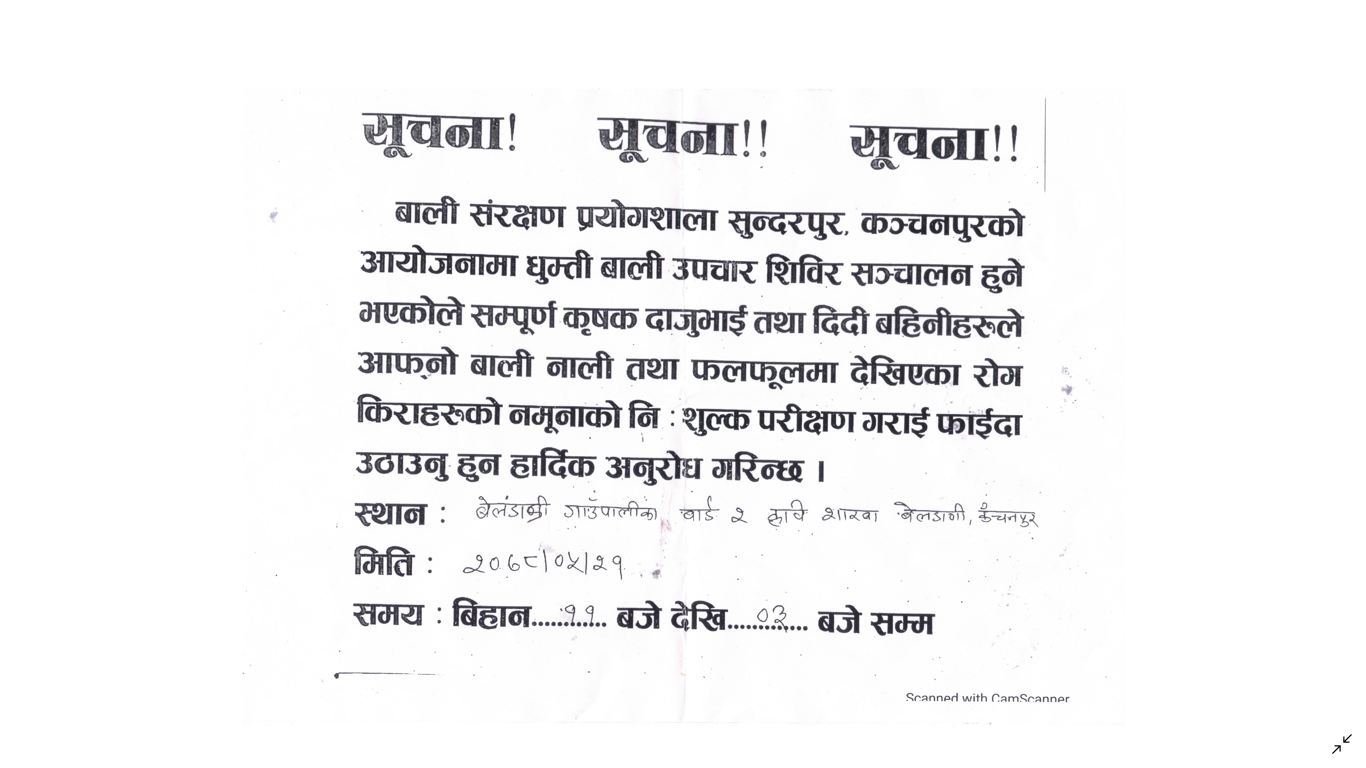 सूचना! सूचना!! सूचना!!
बाली संरक्षण प्रयोगशाला सुन्दरपुर, कञ्चनपुरको
आयोजनामा घुम्ती बाली उपचार शिविर सञ्चालन हुने
भएकोले सम्पूर्ण कृषक दाजुभाई तथा दिदी बहिनीहरुले
आफ्नो बाली नाली तथा फलफूलमा देखिएका रोग
किराहरुको नमूनाको नि : शुल्क परीक्षण गराई फाईदा
उठाउनु हुन हार्दिक अनुरोध गरिन्छ ।
स्थान : गाउँपालीका, वार्ड २ शाखा बेलडाँगी, कंचनपुर
मिति : २०७८/०५/२१
समय : बिहान......११... बजे देखि......०३... बजे सम्म
Scanned with CamScanner